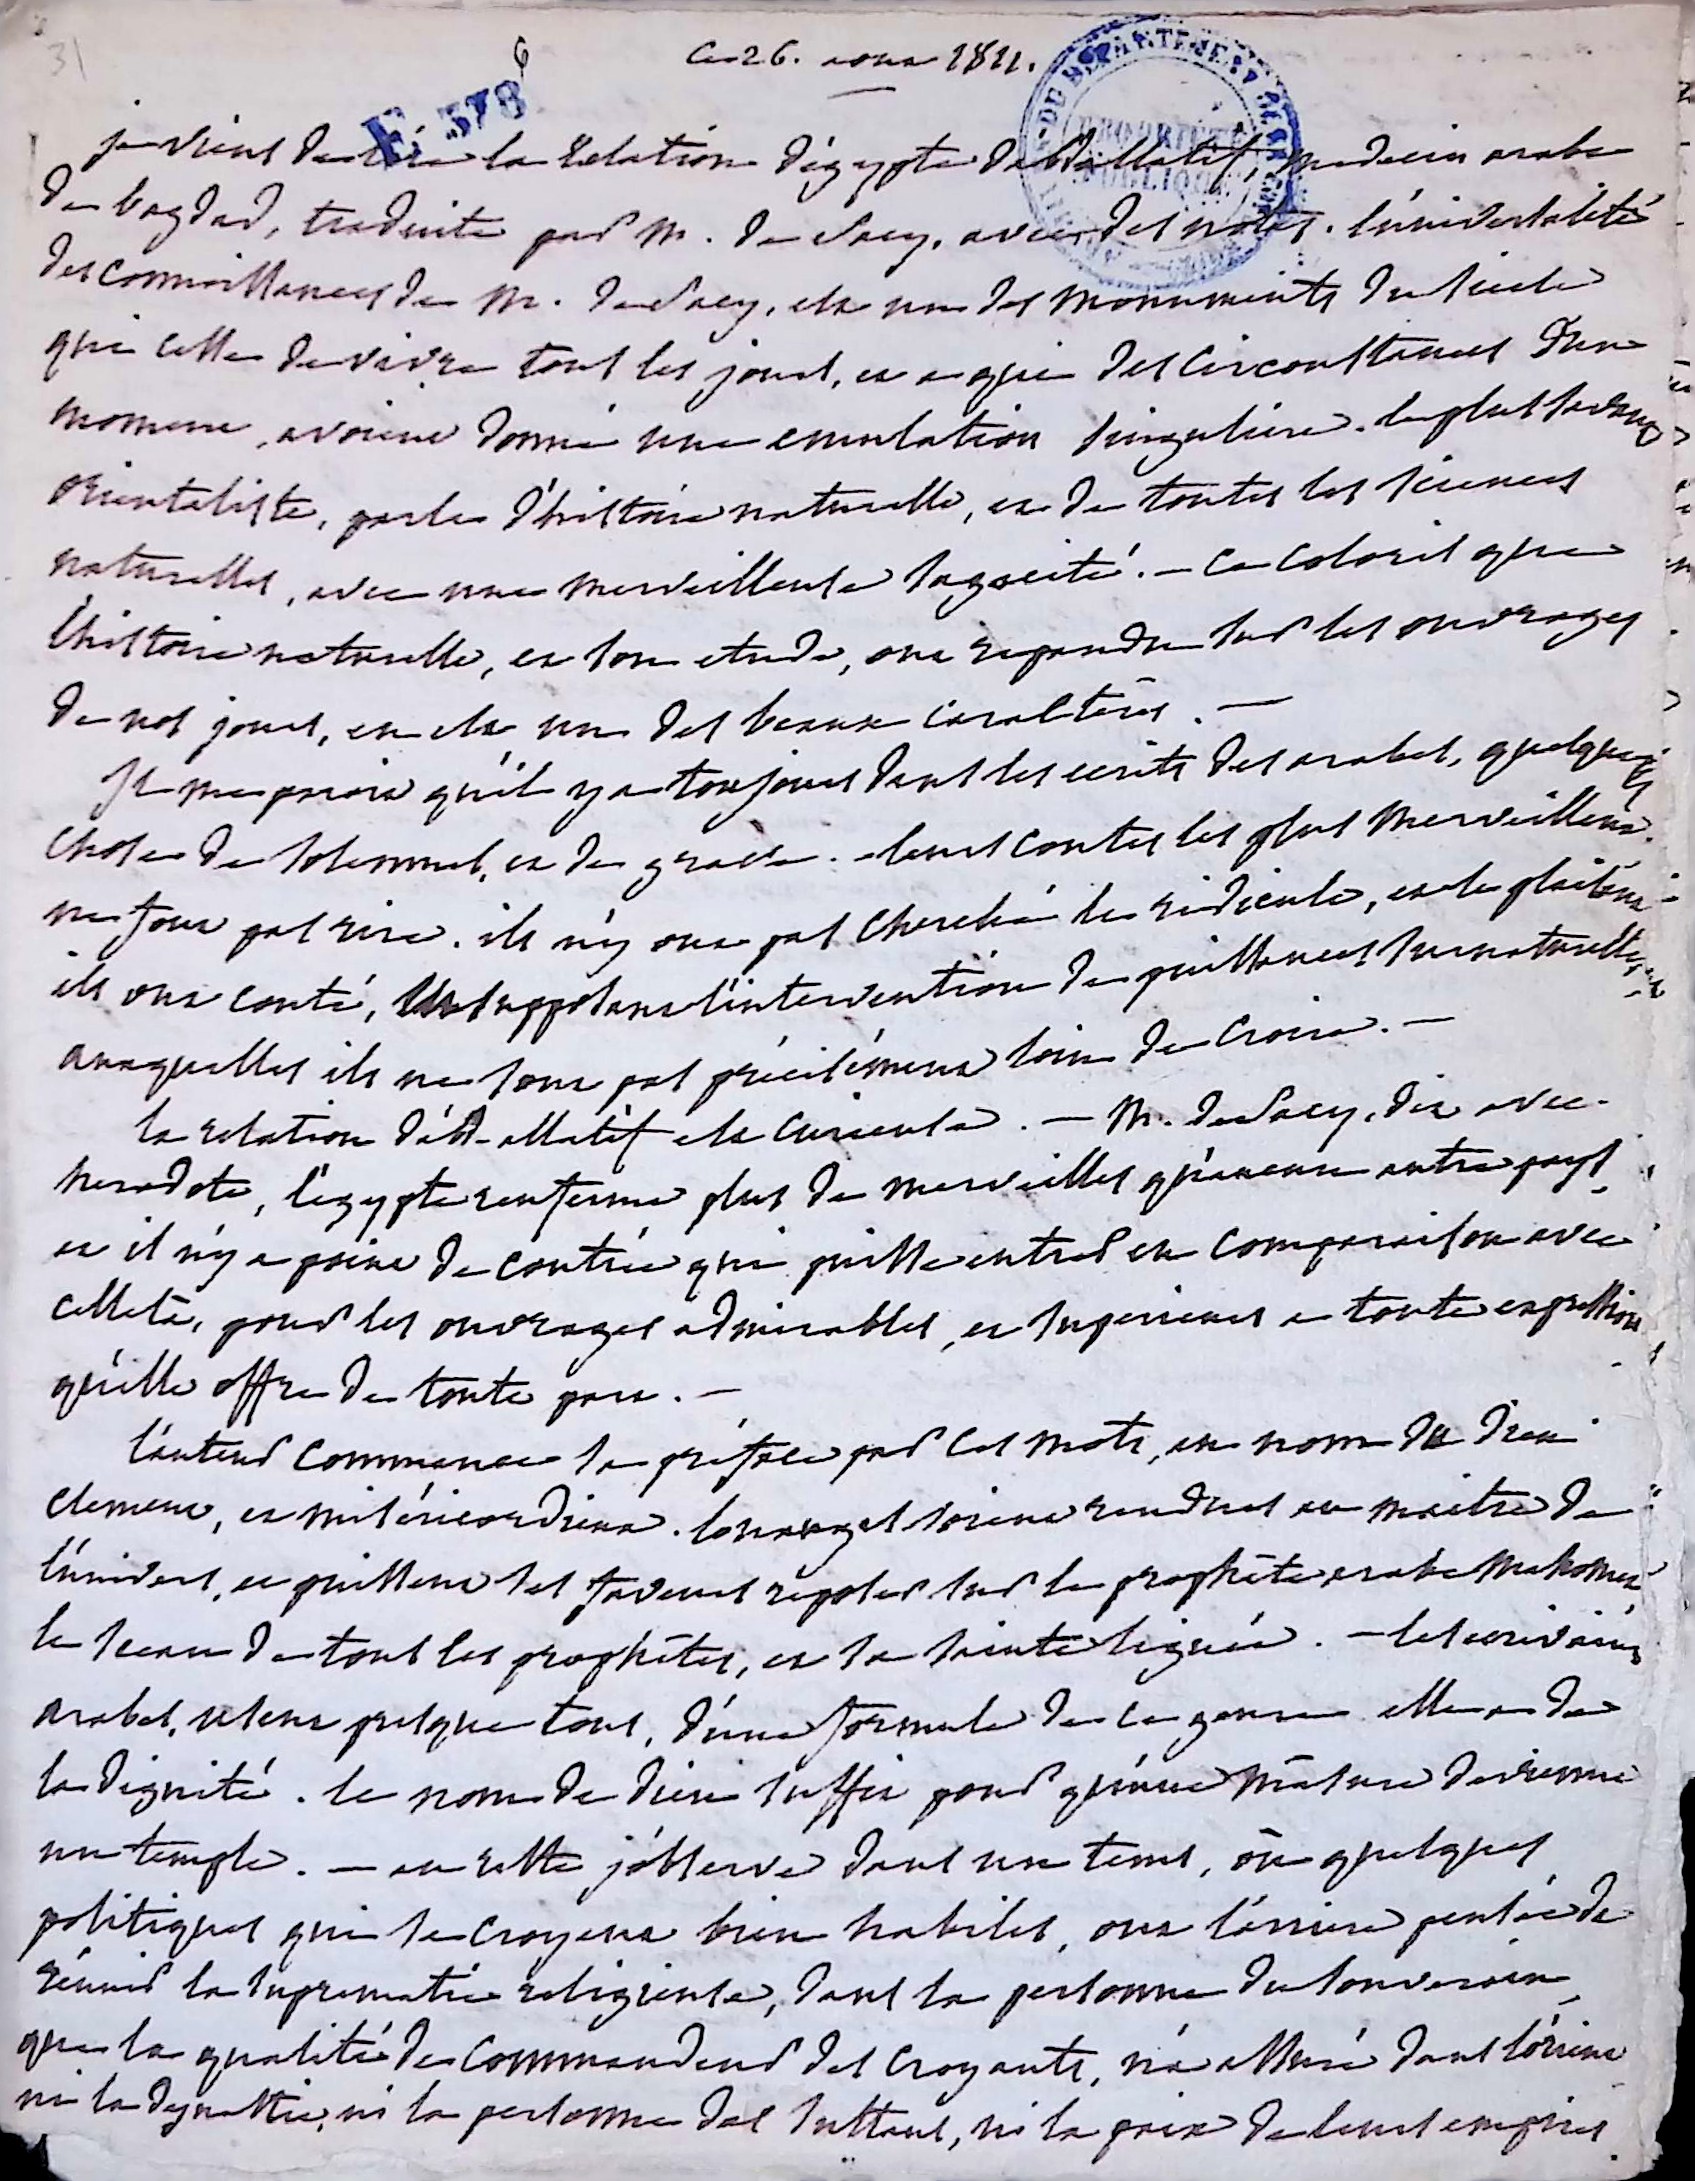 31
6
ce 26. aoust 1811.
E. 378
DU DEPARTEMENT
PROPRIÉTÉ
PUBLIQUE
je viens de lire la relation d'égypte d'abdallatif, medecin arabe
de bagdad, traduite par M. de Sacy, avec des notes. l'universalité
des connoissances de M. de Sacy, est un des monuments du siecle
qui cesse de vivre tous les jours, et a qui des circonstances d'un
moment, avoient donné une emulation singuliere. le plus savant
orientaliste, parle d'histoire naturelle, et de toutes les sciences
naturelles, avec une merveilleuse sagacité. — ce coloris que
l'histoire naturelle, et son etude, ont repandu sur les ouvrages
de nos jours, en est un des beaux caracteres. —
Il me paroist qu'il y a toujours dans les ecrits des arabes, quelque
chose de solemnel, et de grave. leurs contes les plus merveilleux
ne font pas rire. ils n'y ont pas cherché le ridicule, et le plaisant
ils ont conté, supposant l'intervention de puissances surnaturelles,
auxquelles ils ne sont pas précisément loin de croire. —
la relation d'abd-allatif est curieuse. — M. de Sacy, dit avec
herodote, l'egypte renferme plus de merveilles qu'aucun autre pays,
et il n'y a point de contrée qui puisse entrer en comparaison avec
celle là, pour les ouvrages admirables, et superieurs a toute expression
qu'elle offre de toute part. —
l'auteur commence sa préface par ces mots, au nom de dieu
clement, et miséricordieux. louanges soient rendues au maitre de
l'univers, et puissent ses faveurs reposer sur le prophéte arabe mahomet
le sceau de tous les prophétes, et sa sainte lignée. — les ecrivains
arabes, usent presque tous, d'une formule de ce genre elle a de
la dignité. le nom de dieu suffit pour qu'une masure devienne
un temple. — au reste j'observe dans un tems, où quelques
politiques qui se croyent bien habiles, ont l'arriere pensée de
réunir la suprematie religieuse, dans la personne du souverain,
que la qualité de commandeur des croyants, n'a assuré dans l'orient
ni la dynastie, ni la personne des sultans, ni la paix de leurs empires